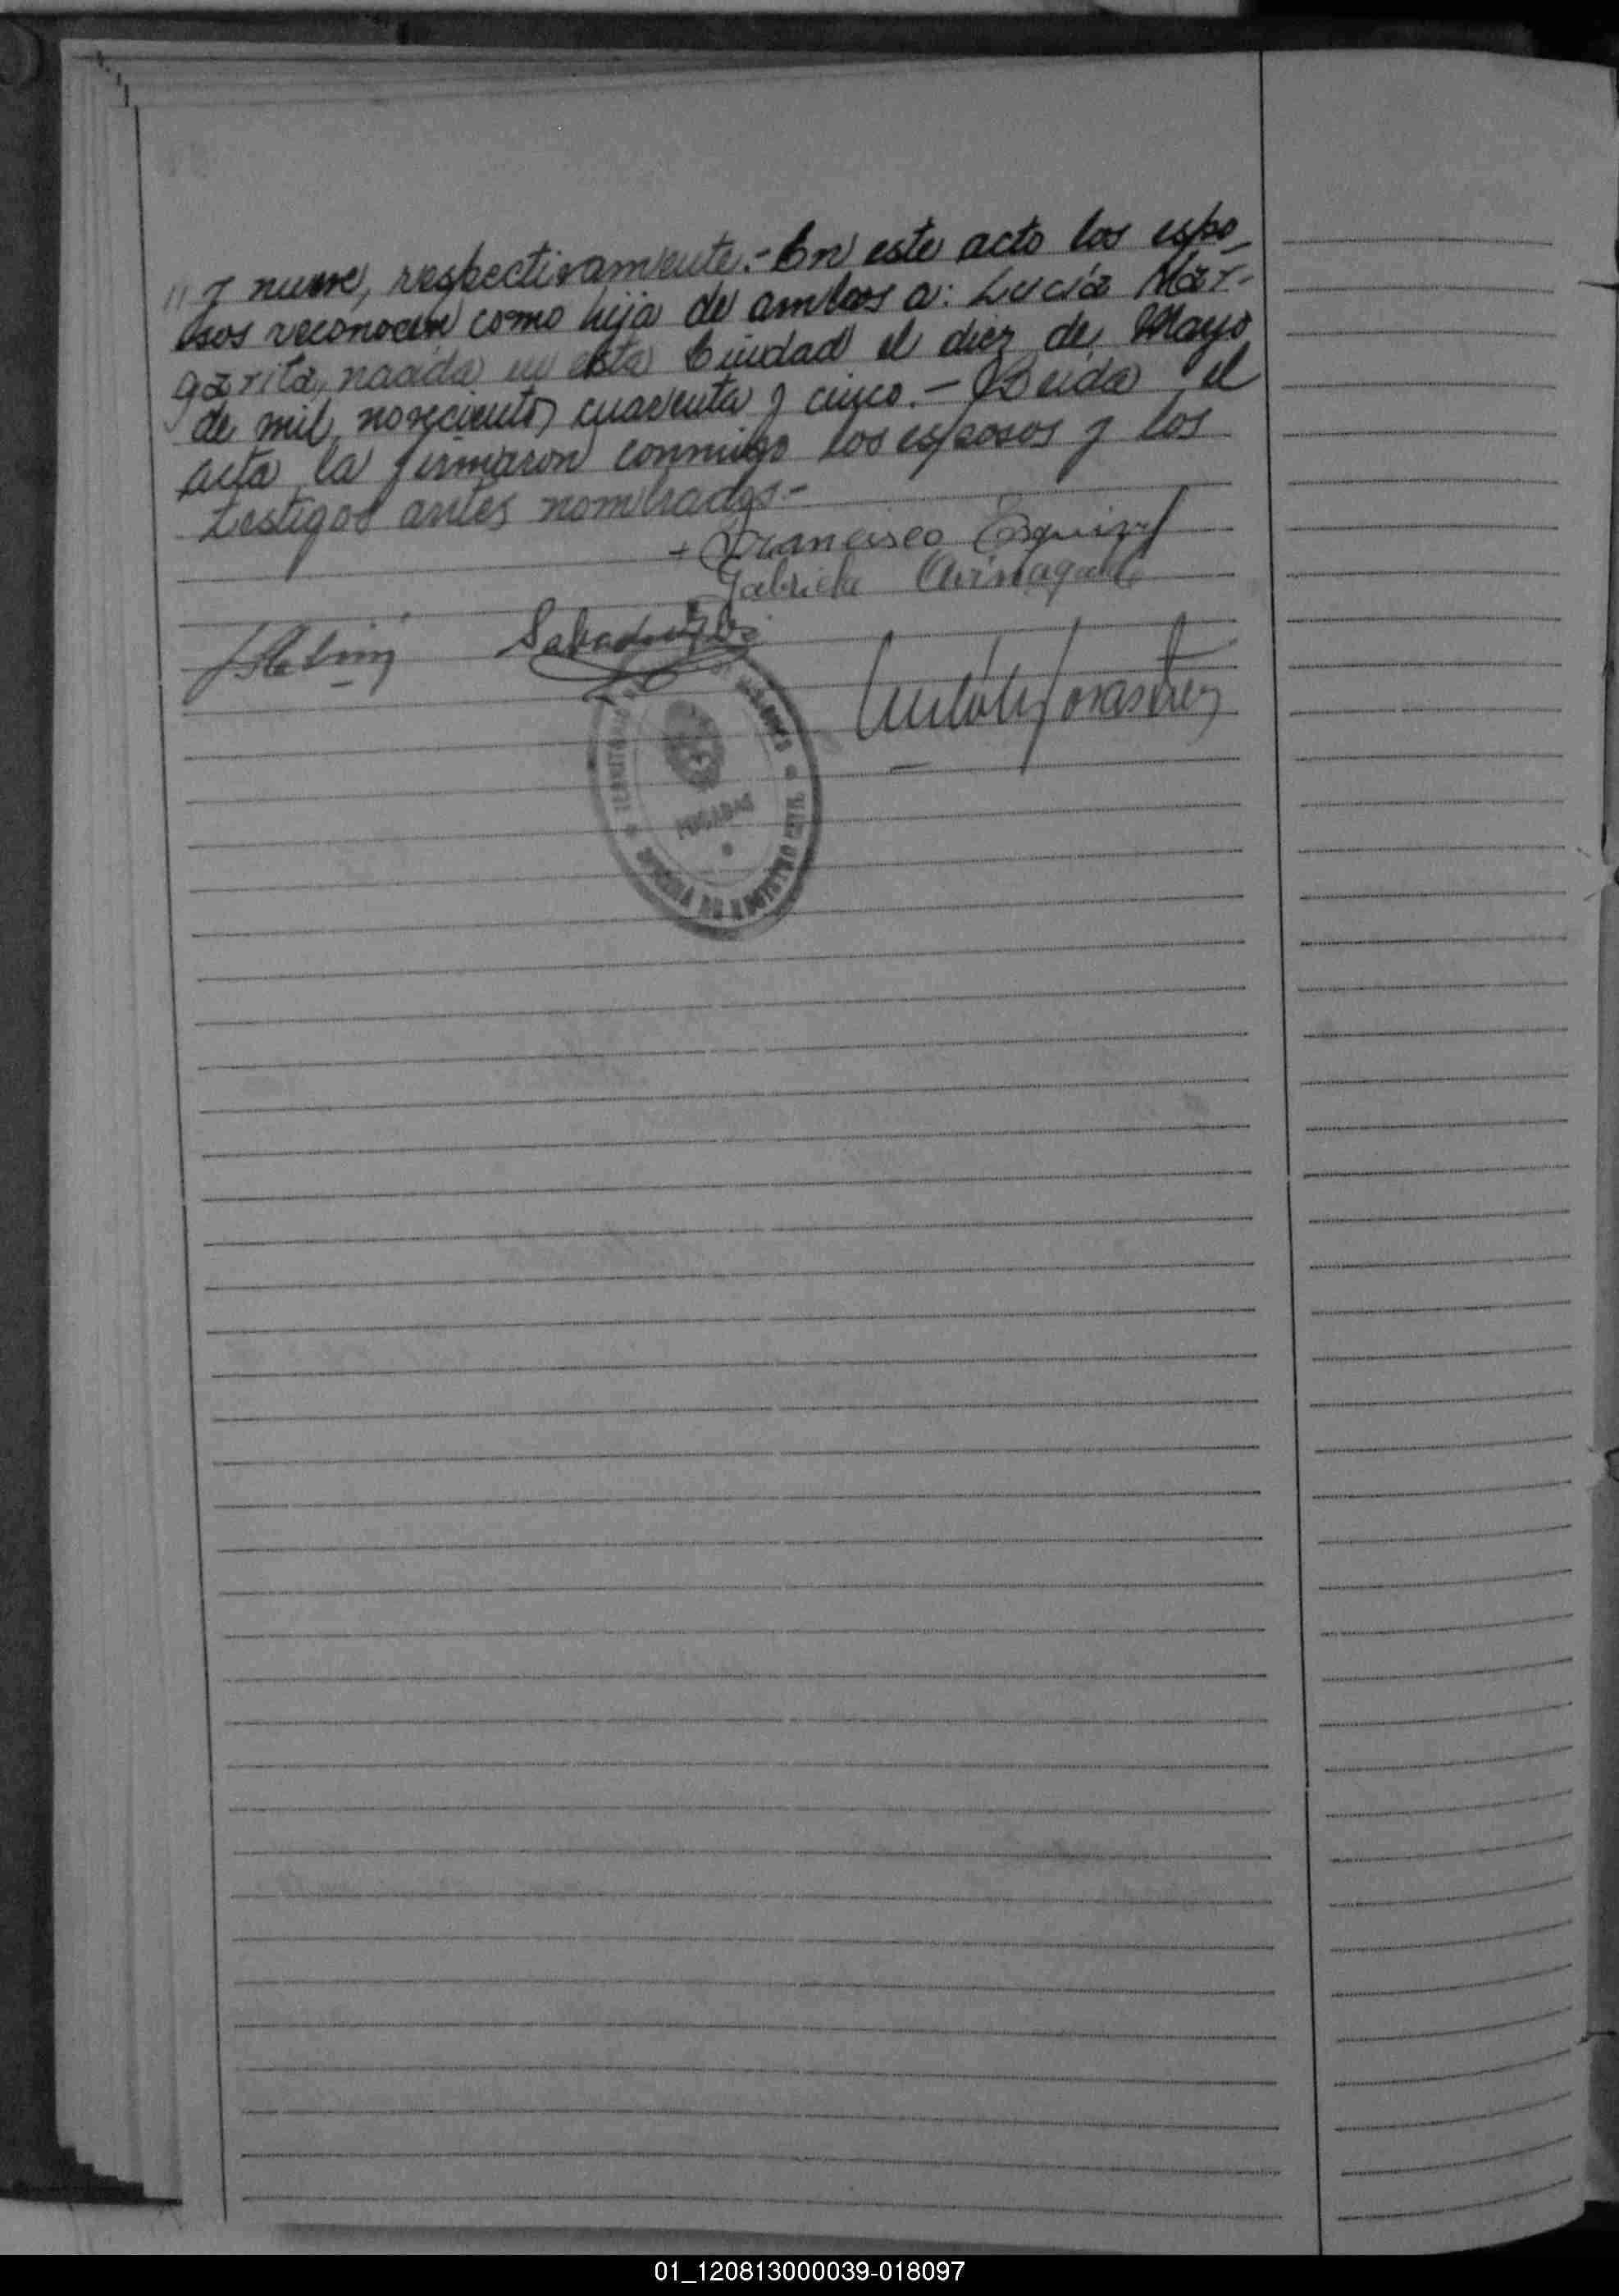 " y nueve, respectivamente.- En este acto los espo-
sos reconocen como hija de ambos a: Lucía Mar-
garita, nacida en esta Ciudad el diez de Mayo
de mil novecientos cuarenta y cinco.- Leida el
acta la firmaron conmigo los esposos y los
testigos antes nombrados.-
+ Francisco Esquivel
Gabriela
Salvador
TERRITORIO DE MISIONES
POSADAS
OFICINA DE REGISTRO CIVIL
01_120813000039-018097